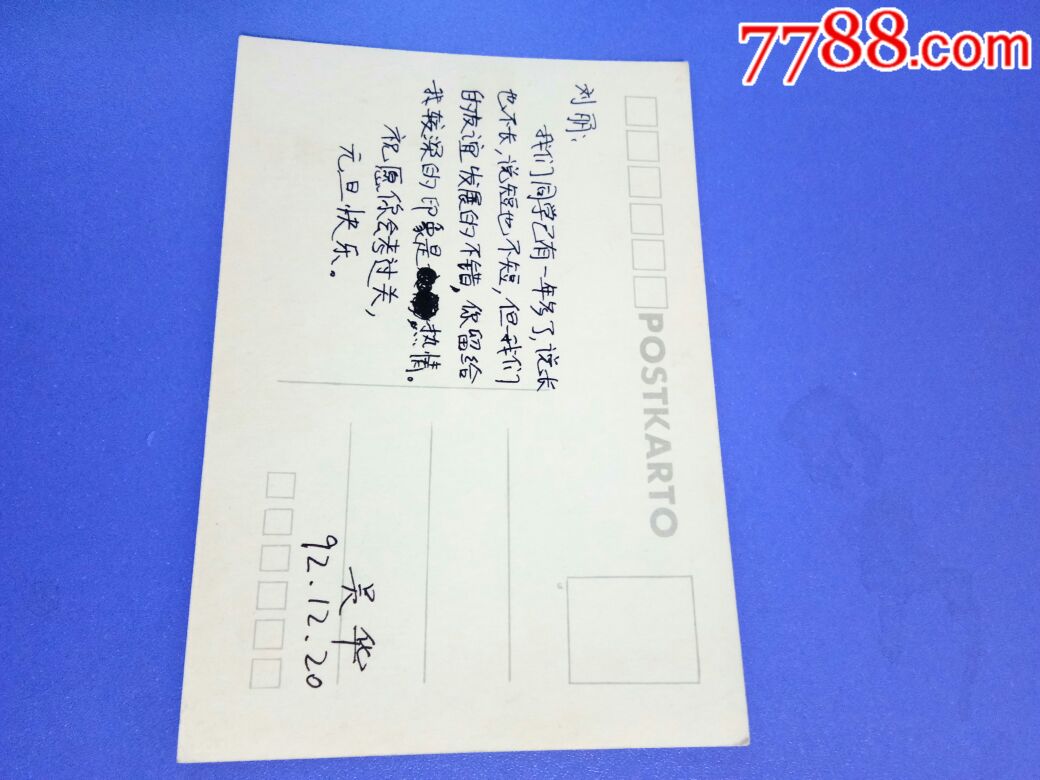 7788.com
POSTKARTO
刘朋：
我们同学已有一年多了，说长
也不长，说短也不短，但我们
的友谊发展的不错，你留给
我较深的印象是热情。
祝愿你会考过关，
元旦快乐。
吴华
92.12.20